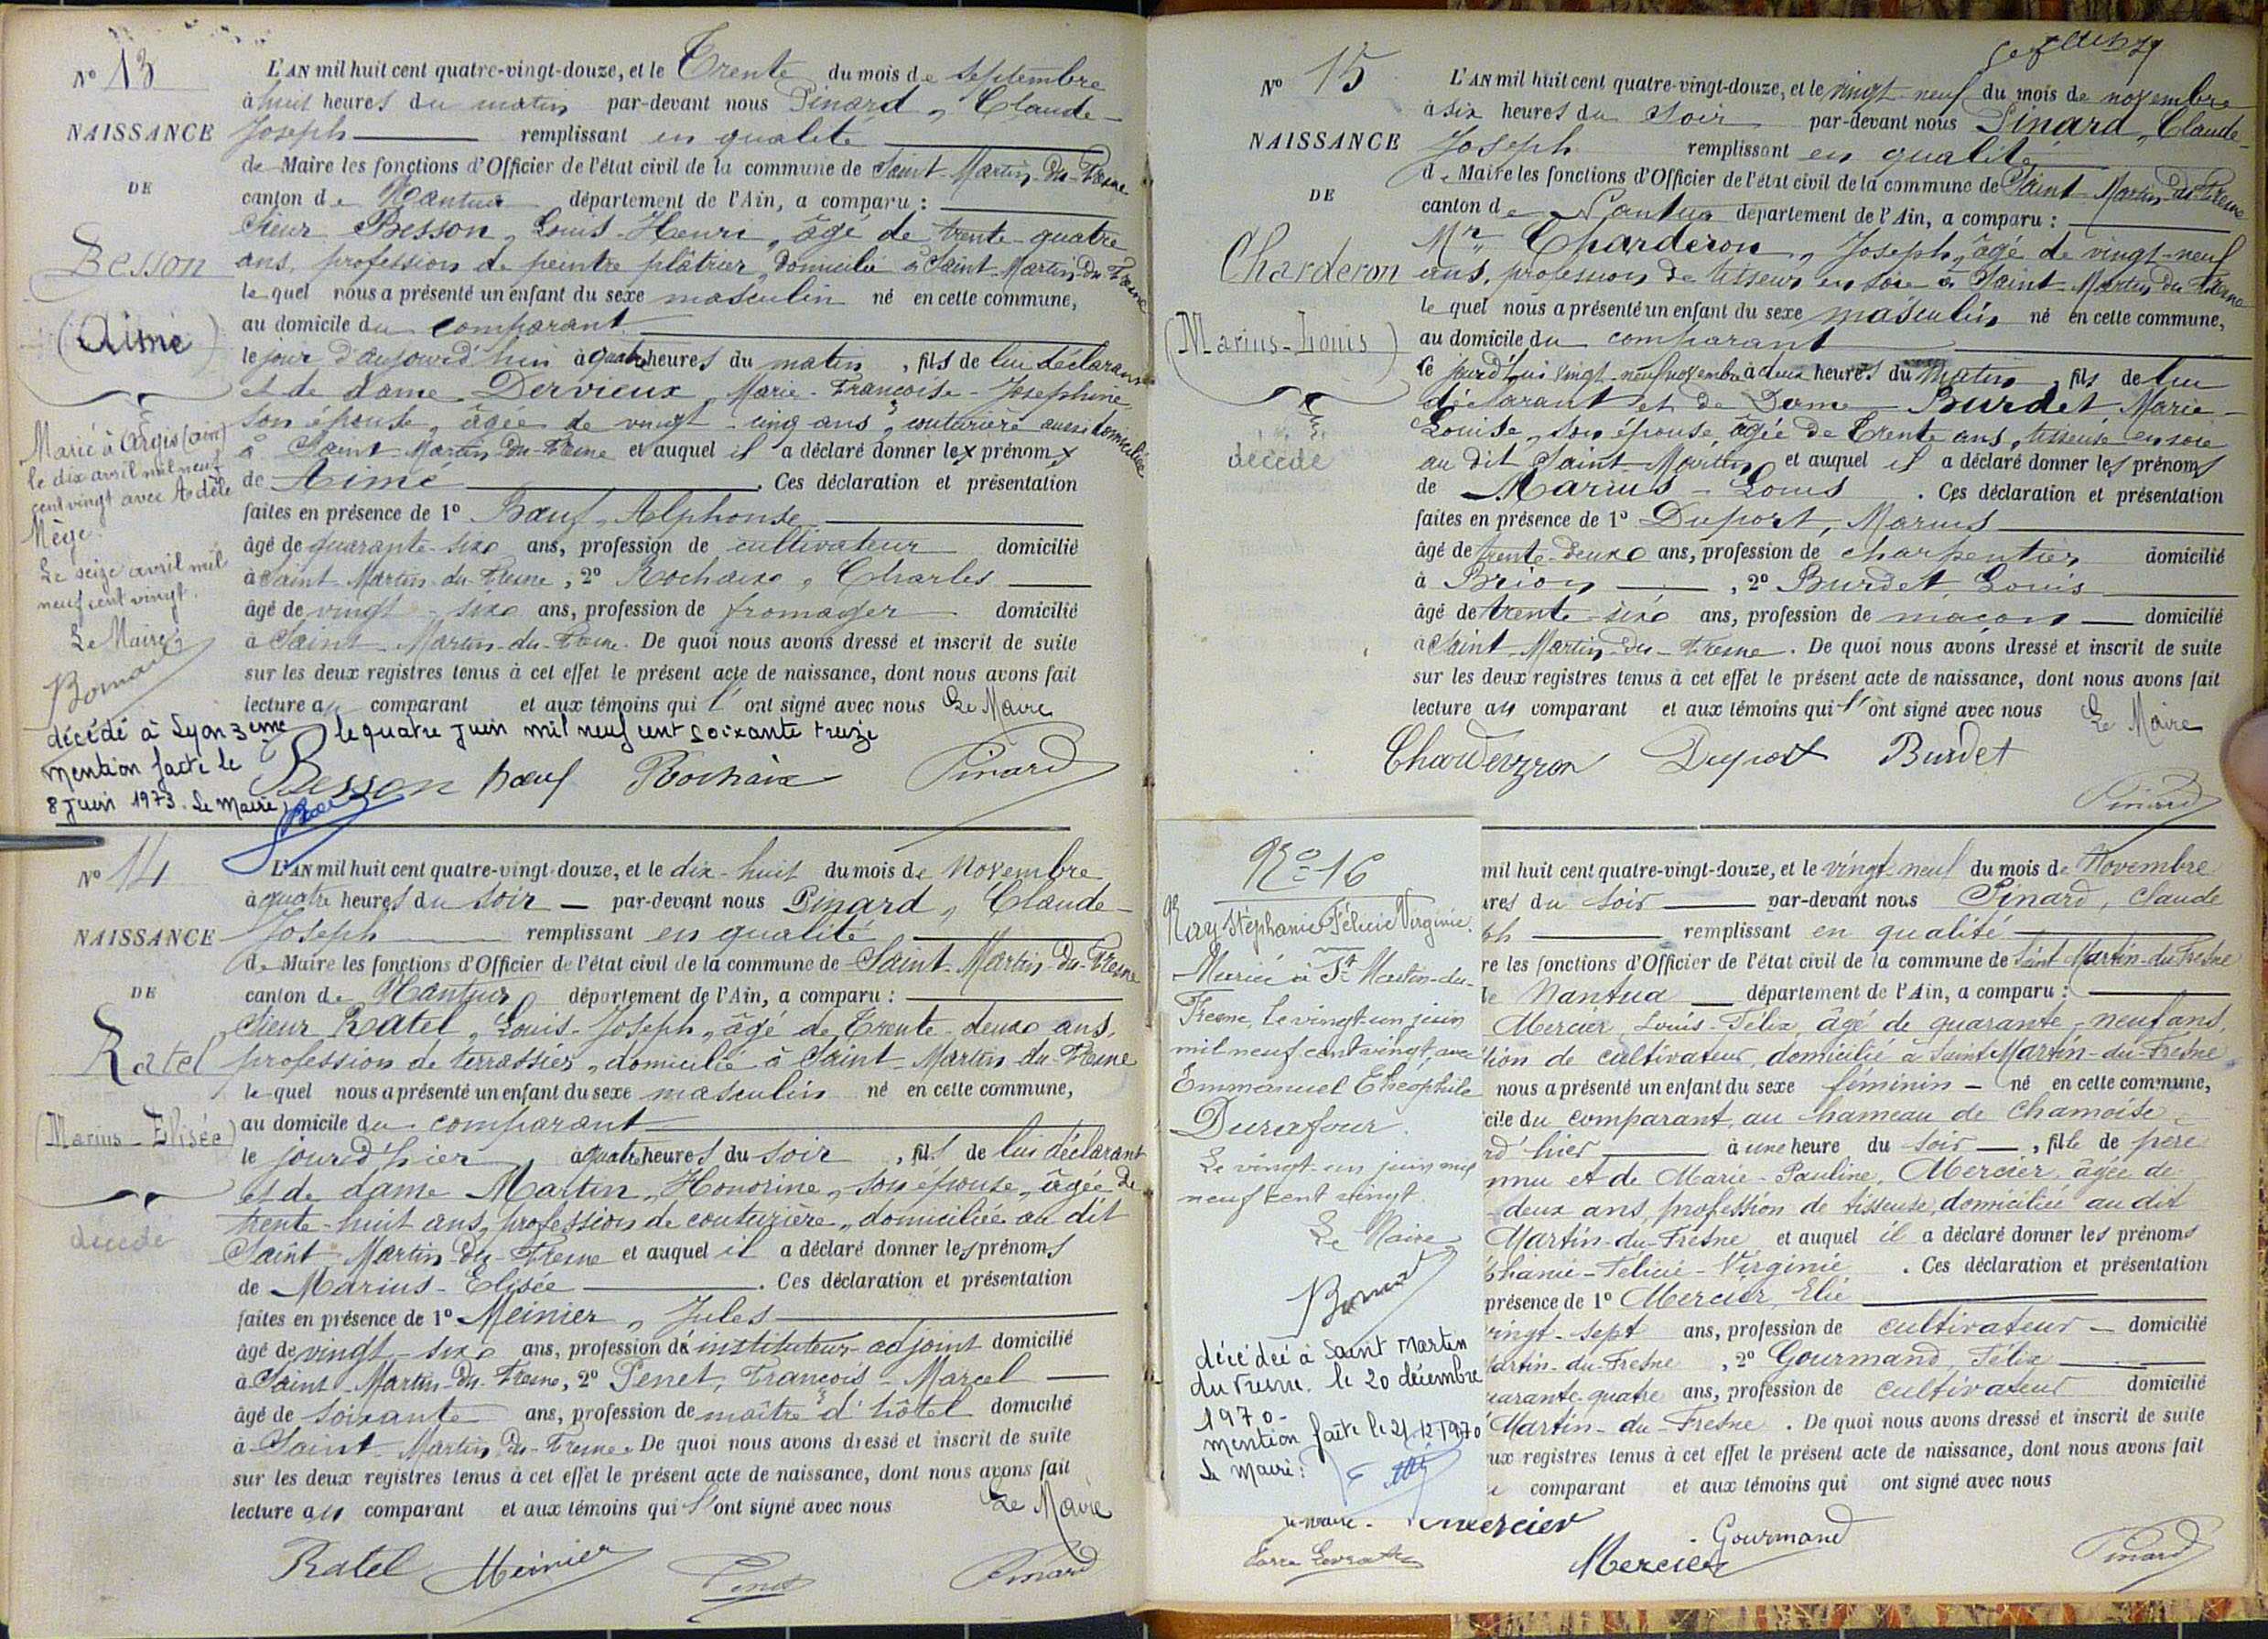 N° 13
NAISSANCE
DE
Besson
(Aimé)
Marié à Argis (ain)
le dix avril mil neuf
cent vingt avec Adèle
Mège.
Le seize avril mil
neuf cent vingt.
Le Maire
L'AN mil huit cent quatre-vingt-douze, et le Trente du mois de septembre
à huit heures du matin par-devant nous Pinard, Claude-
Joseph remplissant en qualité
de Maire les fonctions d'Officier de l'état civil de la commune de Saint-Martin-du-Fresne
canton de Nantua département de l'Ain, a comparu :
Sieur Besson, Louis-Henri, âgé de trente-quatre
ans, profession de peintre plâtrier, domicilié à Saint-Martin-du-Fresne
lequel nous a présenté un enfant du sexe masculin né en cette commune,
au domicile du comparant
le jour d'aujourd'hui à quatre heures du matin, fils de lui déclarant
et de dame Dervieux, Marie-Françoise-Josephine,
son épouse, âgée de vingt-cinq ans, couturière aussi domiciliée
à Saint-Martin-du-Fresne et auquel il a déclaré donner le prénom
de Aimé. Ces déclaration et présentation
faites en présence de 1° Bœuf, Alphonse
âgé de quarante-six ans, profession de cultivateur domicilié
à Saint-Martin-du-Fresne, 2° Rochaix, Charles
âgé de vingt-six ans, profession de fromager domicilié
à Saint-Martin-du-Fresne. De quoi nous avons dressé et inscrit de suite
sur les deux registres tenus à cet effet le présent acte de naissance, dont nous avons fait
lecture au comparant et aux témoins qui l'ont signé avec nous Le Maire
décédé à Lyon 3ème le quatre Juin mil neuf cent soixante treize
mention faite le
8 Juin 1973. Le Maire,
Besson Bœuf Rochaix Pinard
N° 14
NAISSANCE
DE
Ratel
(Marius-Elisée)
décédé
L'AN mil huit cent quatre-vingt-douze, et le dix-huit du mois de Novembre
à quatre heures du soir — par-devant nous Pinard, Claude-
Joseph remplissant en qualité
de Maire les fonctions d'Officier de l'état civil de la commune de Saint-Martin-du-Fresne
canton de Nantua département de l'Ain, a comparu :
Sieur Ratel, Louis-Joseph, âgé de Trente-deux ans,
profession de terrassier, domicilié à Saint-Martin-du-Fresne
lequel nous a présenté un enfant du sexe masculin né en cette commune,
au domicile du comparant
le jour d'hier à quatre heures du soir, fils de lui déclarant
et de dame Martin, Honorine, son épouse, âgée de
trente-huit ans, profession de couturière, domiciliée au dit
Saint-Martin-du-Fresne et auquel il a déclaré donner les prénoms
de Marius-Elisée. Ces déclaration et présentation
faites en présence de 1° Meinier, Jules
âgé de vingt-six ans, profession d'instituteur-adjoint domicilié
à Saint-Martin-du-Fresne, 2° Penet, François-Marcel
âgé de soixante ans, profession de maître d'hôtel domicilié
à Saint-Martin-du-Fresne. De quoi nous avons dressé et inscrit de suite
sur les deux registres tenus à cet effet le présent acte de naissance, dont nous avons fait
lecture au comparant et aux témoins qui l'ont signé avec nous Le Maire
Ratel Meinier Penet Pinard
N° 15
NAISSANCE
DE
Charderon
(Marius-Louis)
décédé
L'AN mil huit cent quatre-vingt-douze, et le vingt-neuf du mois de novembre
à six heures du soir par-devant nous Pinard, Claude-
Joseph remplissant en qualité
de Maire les fonctions d'Officier de l'état civil de la commune de Saint-Martin-du-Fresne
canton de Nantua département de l'Ain, a comparu :
Mr Charderon, Joseph, âgé de vingt-neuf
ans, profession de tisseur en soie à Saint-Martin-du-Fresne
lequel nous a présenté un enfant du sexe masculin né en cette commune,
au domicile du comparant
le jourd'hui vingt-neuf novembre à deux heures du matin, fils de lui
déclarant et de Dame Burdet Marie-
Louise, son épouse, âgée de Trente ans, tisseuse en soie
au dit Saint-Martin et auquel il a déclaré donner les prénoms
de Marius-Louis. Ces déclaration et présentation
faites en présence de 1° Duport, Marius
âgé de trente-deux ans, profession de charpentier domicilié
à Brion, 2° Burdet Louis
âgé de trente-six ans, profession de maçon domicilié
à Saint-Martin-du-Fresne. De quoi nous avons dressé et inscrit de suite
sur les deux registres tenus à cet effet le présent acte de naissance, dont nous avons fait
lecture au comparant et aux témoins qui l'ont signé avec nous Le Maire
Charderon Duport Burdet
Pinard
N° 16
Stéphanie Félicie Virginie.
Mariée à St Martin-du-
Fresne, le vingt-un juin
mil neuf cent vingt, avec
Emmanuel Théophile
Durafour.
Le vingt-un juin mil
neuf cent vingt.
Le Maire
décédée à Saint Martin
du Fresne. le 20 décembre
1970-
mention faite le 21.12.1970
Le Maire :
mil huit cent quatre-vingt-douze, et le vingt-neuf du mois de Novembre
res du soir par-devant nous Pinard, Claude
ph remplissant en qualité
re les fonctions d'Officier de l'état civil de la commune de Saint Martin-du-Fresne
de Nantua département de l'Ain, a comparu :
Mercier, Louis-Félix, âgé de quarante-neuf ans,
tion de cultivateur, domicilié à Saint Martin-du-Fresne
nous a présenté un enfant du sexe féminin — né en cette commune,
cile du comparant, au hameau de Chamoise
rd'hier à une heure du soir —, fille de père
nnu et de Marie-Pauline, Mercier, âgée de
deux ans, profession de tisseuse, domiciliée au dit
Martin-du-Fresne et auquel il a déclaré donner les prénoms
phanie-Felicie-Virginie. Ces déclaration et présentation
présence de 1° Mercier, Elie
vingt-sept ans, profession de cultivateur — domicilié
Martin-du-Fresne, 2° Gourmand, Félix
uarante-quatre ans, profession de cultivateur domicilié
Martin-du-Fresne. De quoi nous avons dressé et inscrit de suite
ux registres tenus à cet effet le présent acte de naissance, dont nous avons fait
comparant et aux témoins qui ont signé avec nous
Mercier Gourmand
Mercier Pinard